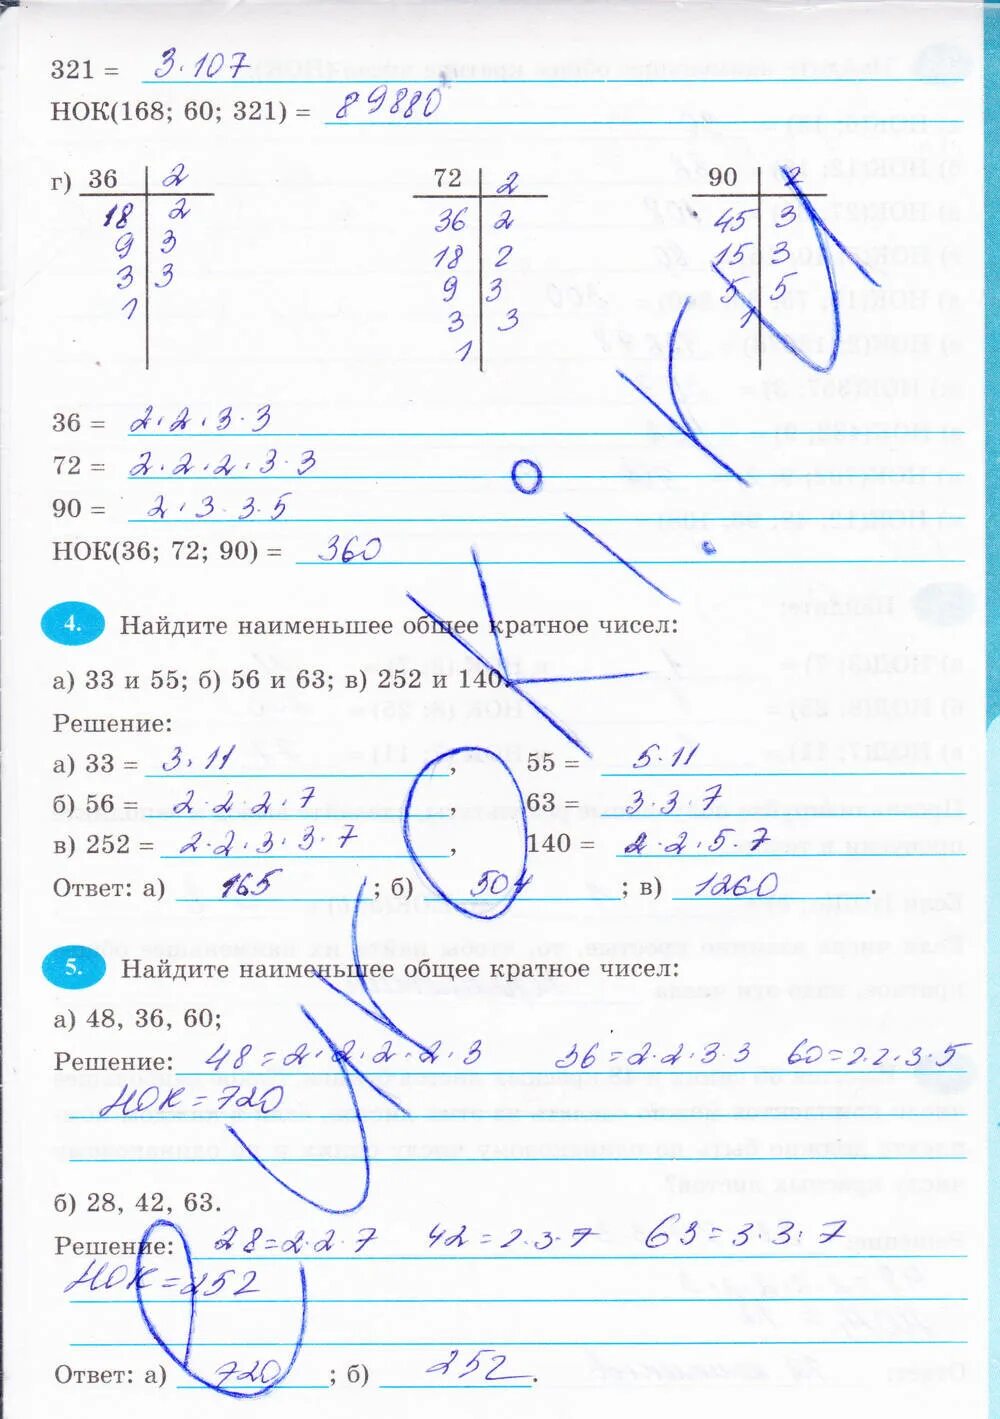 321 = 3·107
НОК(168; 60; 321) = 89880
г) 36 | 2 72 | 2 90 | 2
18 | 2 36 | 2 45 | 3
9 | 3 18 | 2 15 | 3
3 | 3 9 | 3 5 | 5
1 3 | 3 1
1
36 = 2·2·3·3
72 = 2·2·2·3·3
90 = 2·3·3·5
НОК(36; 72; 90) = 360
4. Найдите наименьшее общее кратное чисел:
а) 33 и 55; б) 56 и 63; в) 252 и 140.
Решение:
а) 33 = 3·11, 55 = 5·11
б) 56 = 2·2·2·7, 63 = 3·3·7
в) 252 = 2·2·3·3·7, 140 = 2·2·5·7
Ответ: а) 165; б) 504; в) 1260.
5. Найдите наименьшее общее кратное чисел:
а) 48, 36, 60;
Решение: 48=2·2·2·2·3 36=2·2·3·3 60=2·2·3·5
НОК=720
б) 28, 42, 63.
Решение: 28=2·2·7 42=2·3·7 63=3·3·7
НОК=252
Ответ: а) 720; б) 252.